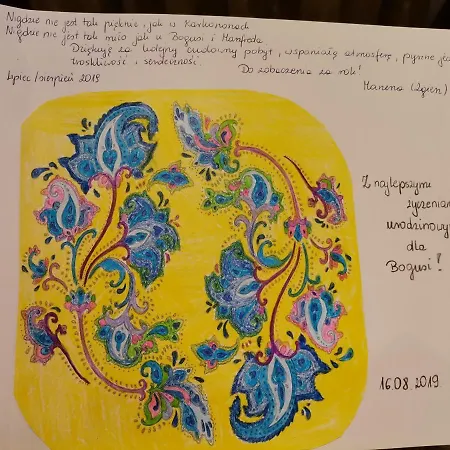 Nigdzie nie jest tak pięknie, jak w Karkonoszach
Nigdzie nie jest tak miło jak u Bogusi i Manfreda.
Dziękuję za kolejny cudowny pobyt, wspaniałą atmosferę, pyszne
troskliwość i serdeczność. Do zobaczenia za rok!
lipiec/sierpień 2019
Marzena (Zgierz)
Z najlepszymi
życzeniami
urodzinowymi
dla
Bogusi!
16.08.2019